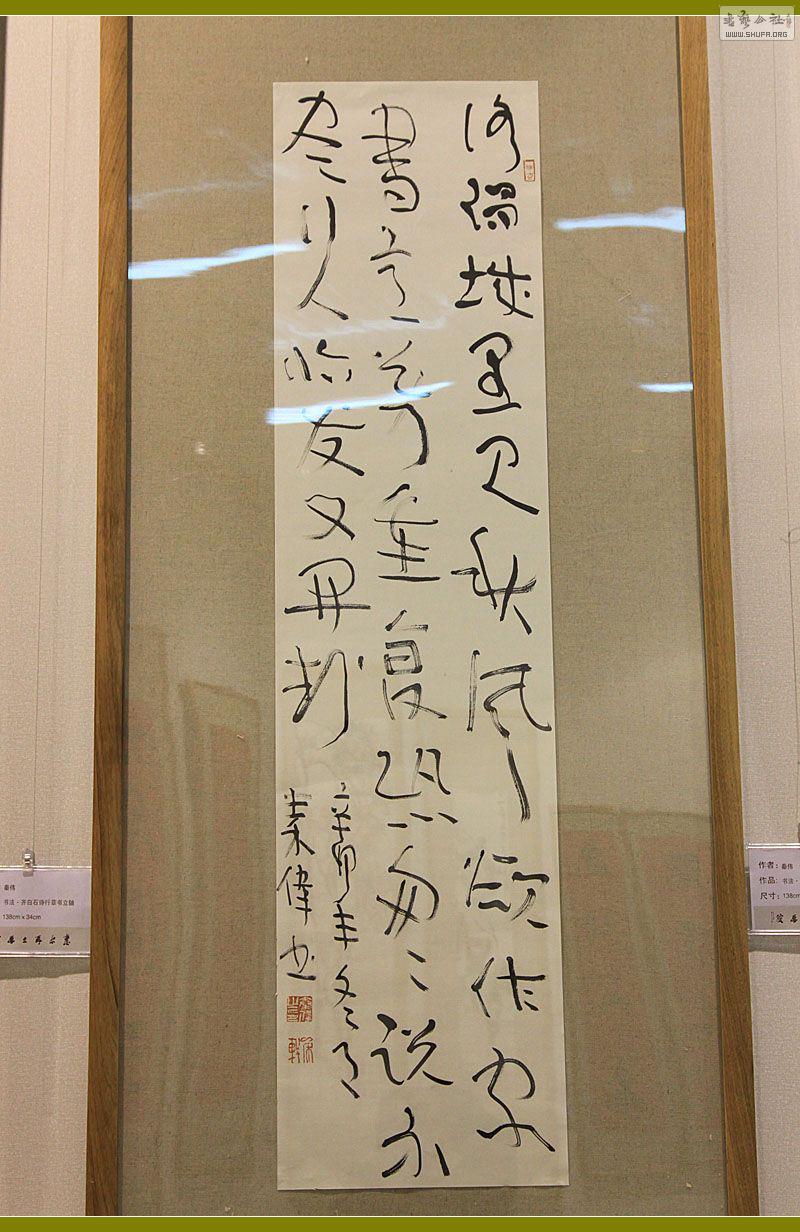 书艺公社
WWW.SHUFA.ORG
洛陽城里见秋风欲作家
書意万重復恐匆匆说不
尽行人临发又开封
辛卯年冬月
秦偉书
秦伟
书法·齐白石诗行草书立轴
138cm x 34cm
作者：秦伟
作品：书法·
尺寸：138cm